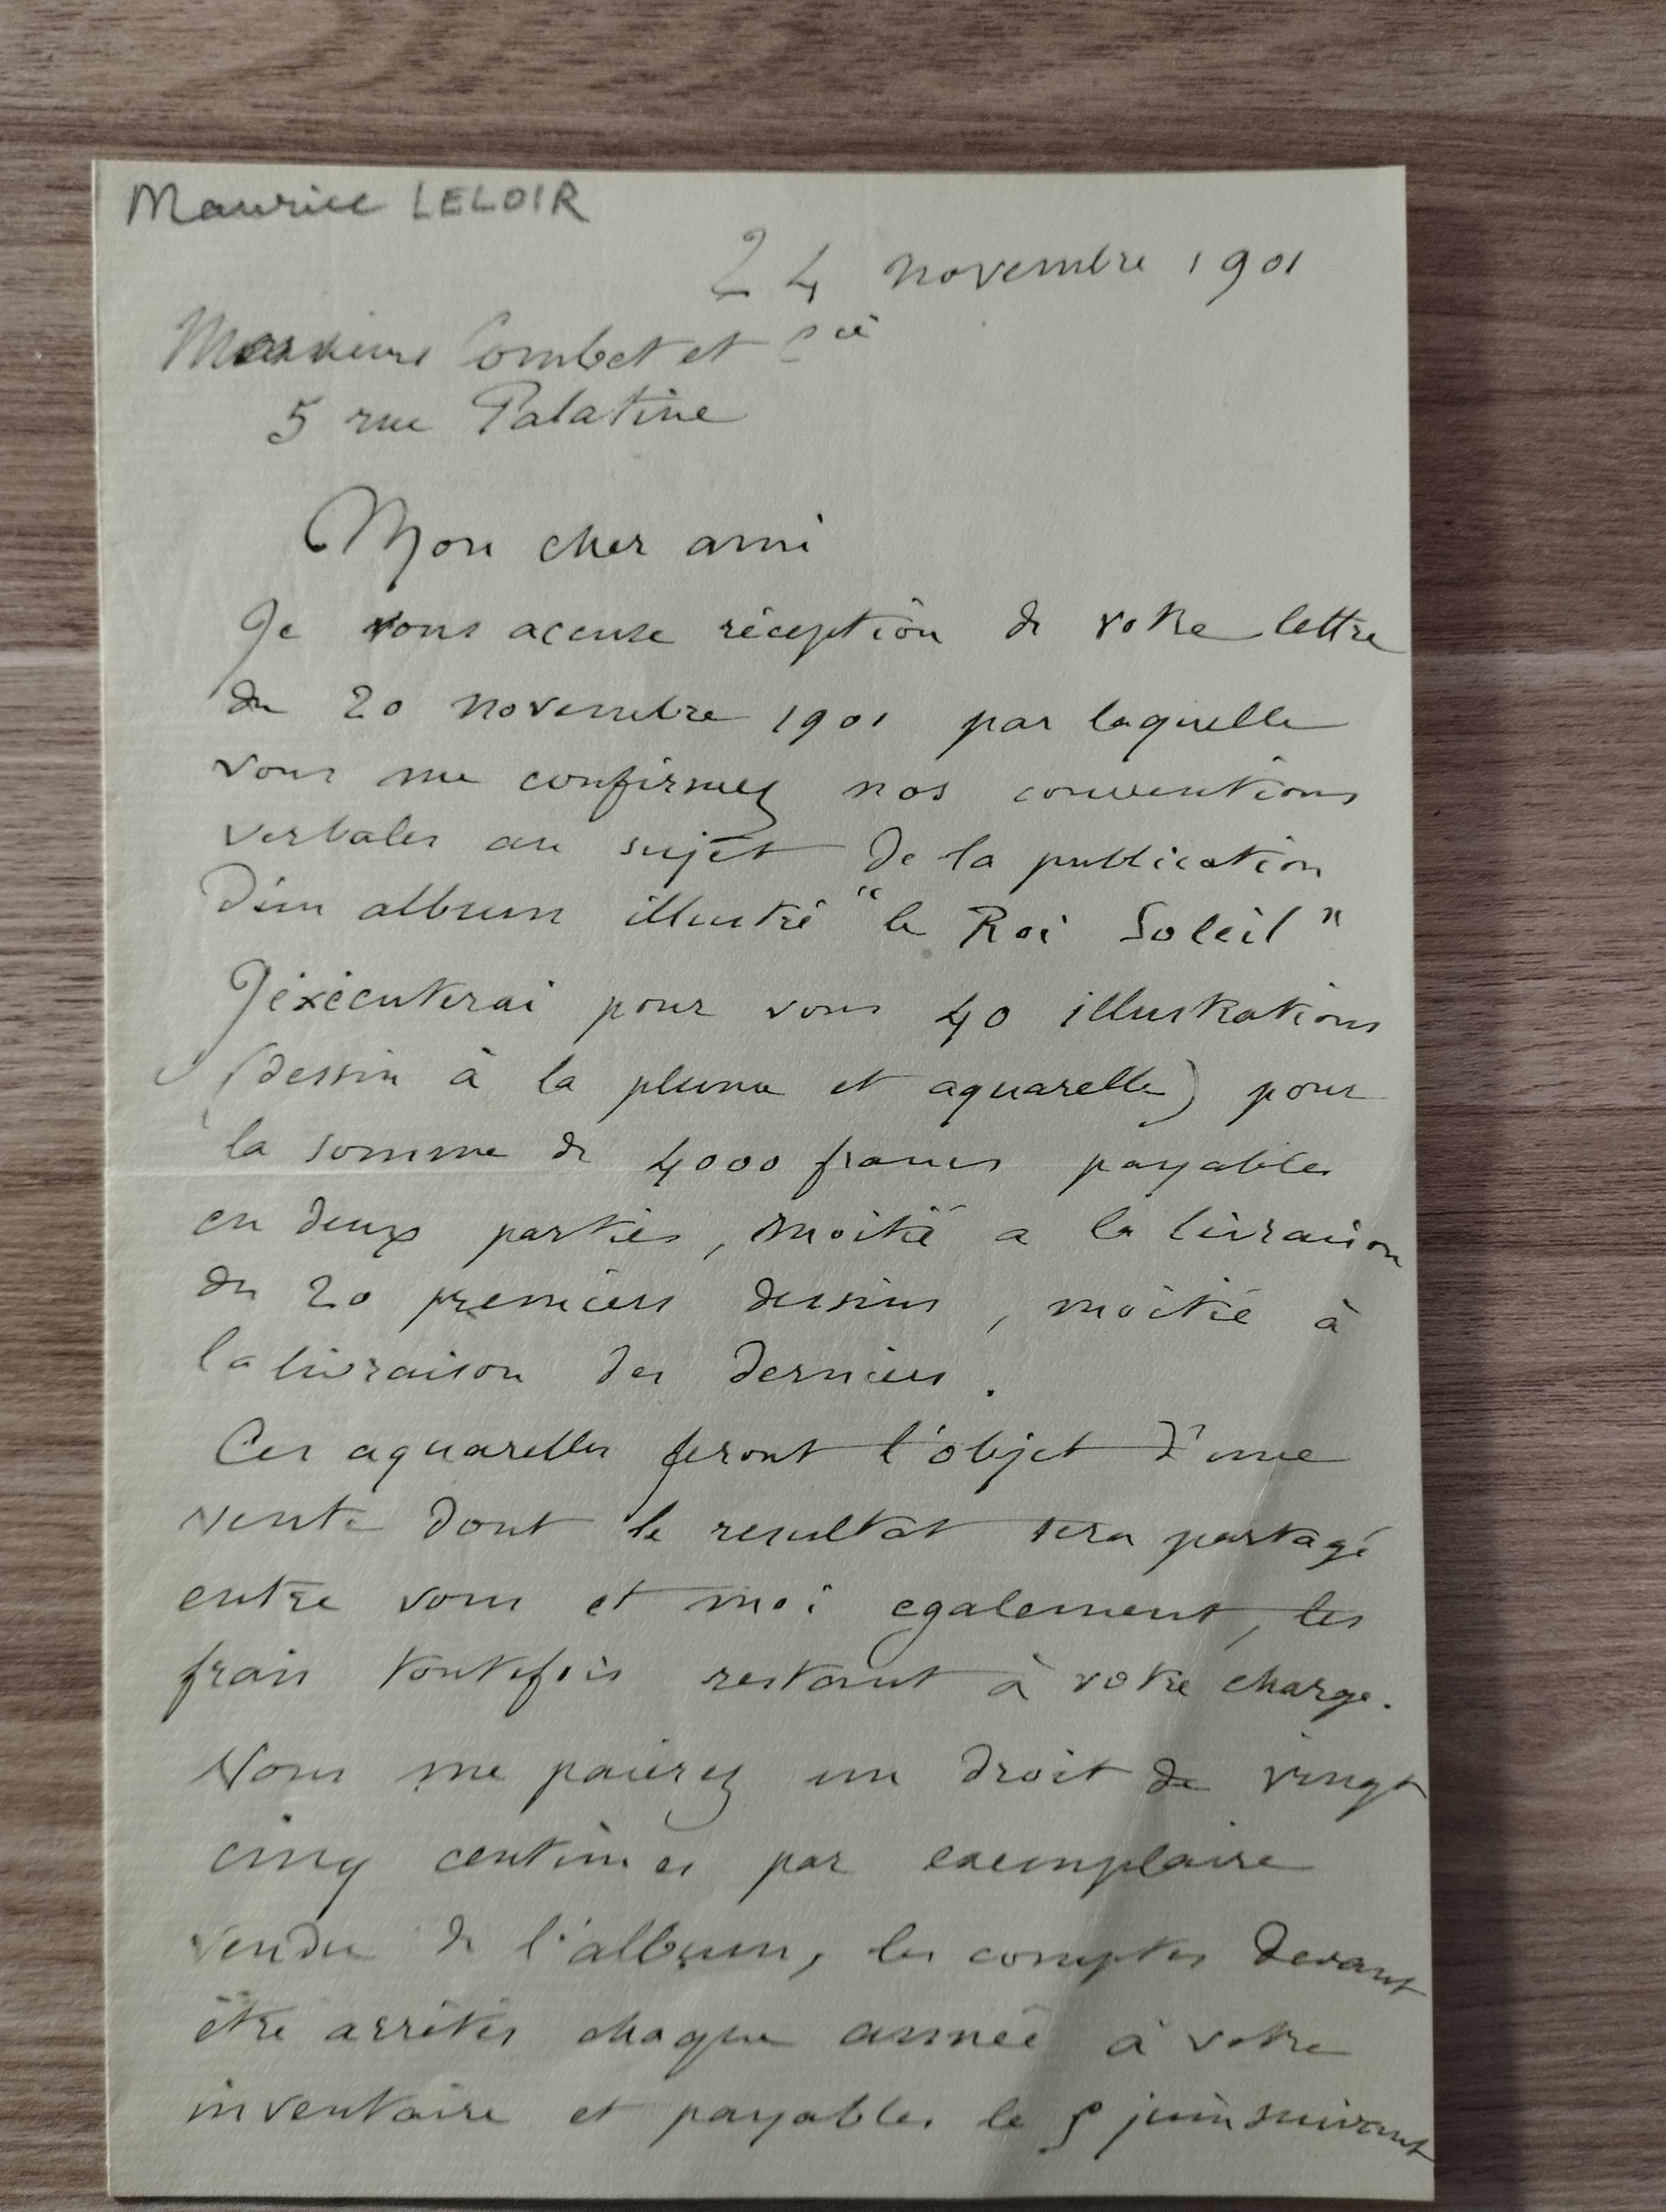 Maurice LELOIR
24 novembre 1901
Messieurs Combet et Cie
5 rue Palatine
Mon cher ami
Je vous accuse réception de votre lettre
du 20 novembre 1901 par laquelle
vous me confirmez nos conventions
verbales au sujet de la publication
d'un album illustré "le Roi Soleil"
J'éxécuterai pour vous 40 illustrations
(dessin à la plume et aquarelle) pour
la somme de 4000 francs payables
en deux parties, moitié a la livraison
des 20 premiers dessins, moitié à
la livraison des derniers.
Ces aquarelles feront l'objet d'une
vente dont le resultat sera partagé
entre vous et moi egalement, les
frais toutefois restant à votre charge.
Vous me paierez un droit de vingt
cinq centimes par exemplaire
vendu de l'album, les comptes devant
être arrêtés chaque année à votre
inventaire et payables le juin suivant